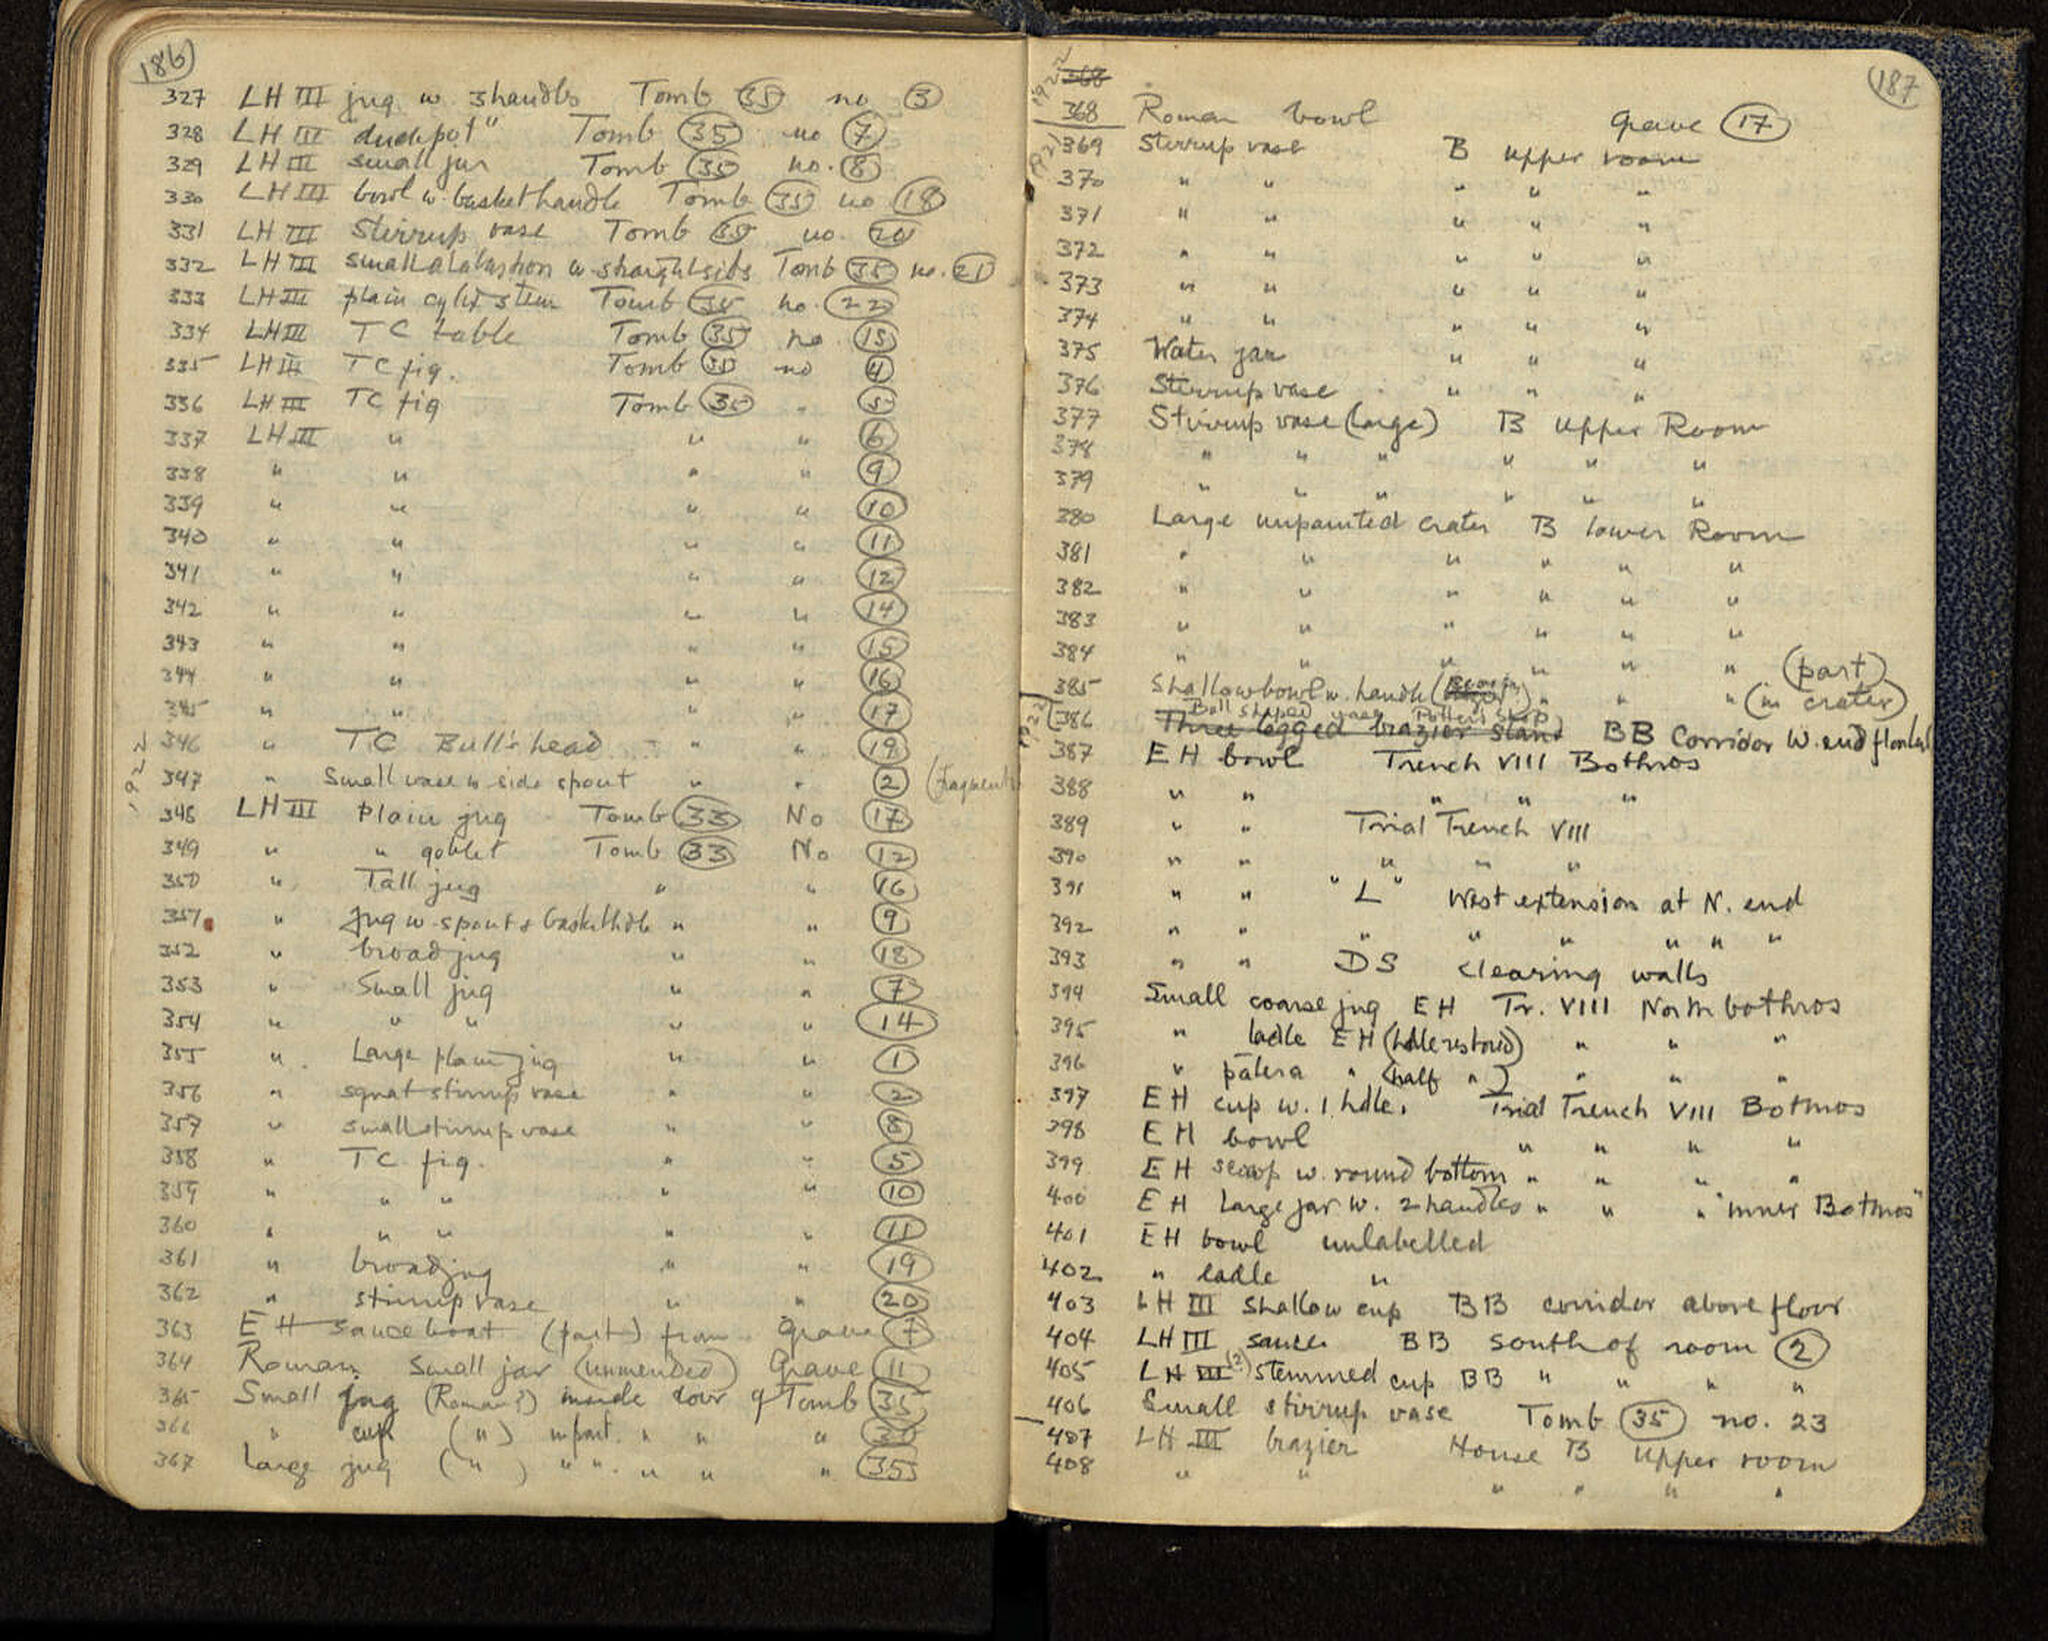 186
327 LH III jug w. 3 handles Tomb 35 no 3
328 LH III duckpot" Tomb 35 no 7
329 LH III small jar Tomb 35 no. 8
330 LH III bowl w. basket handle Tomb 35 no 18
331 LH III Stirrup vase Tomb 35 no. 20
332 LH III small alabastron w straight sides Tomb 35 no. 21
333 LH III plain cylix stem Tomb 35 no. 22
334 LH III TC table Tomb 35 no 13
335 LH III TC fig. Tomb 35 no 4
336 LH III TC fig Tomb 35 " 5
337 LH III " " " 6
338 " " " " 9
339 " " " " 10
340 " " " " 11
341 " " " " 12
342 " " " " 14
343 " " " " 15
344 " " " " 16
345 " " " " 17
346 " TC Bull's head " " 19
1922
347 " Small vase w side spout " " 2 (fragment
348 LH III Plain jug Tomb 33 No 17
349 " " goblet Tomb 33 No 12
350 " Tall jug " " 16
351 " Jug w. spout & baskethdle " " 9
352 " broad jug " " 18
353 " Small jug " " 7
354 " " " " " 14
355 " Large plain jug " " 1
356 " squat stirrup vase " " 2
357 " small stirrup vase " " 8
358 " TC fig. " " 5
359 " " " " " 10
360 " " " " " 11
361 " broad jug " " 19
362 " stirrup vase " " 20
363 EH sauceboat (part) from Grave 7
364 Roman small jar (unmended) Grave 11
365 Small jug (Roman?) inside door of Tomb 35
366 " cup (") in part. " " "
367 Large jug (") " ". " " " 35
187
1922
368
368 Roman bowl Grave 17
1921
369 Stirrup vase B upper room
370 " " " " "
371 " " " " "
372 " " " " "
373 " " " " "
374 " " " " "
375 Water jar " " "
376 Stirrup vase " " "
377 Stirrup vase (large) B Upper Room
378 " " " " " "
379 " " " " " "
380 Large unpainted crater B lower Room
381 " " " " " "
382 " " " " " "
383 " " " " " "
384 " " " " " " (part)
385 Shallow bowl w. handle " " " (in crater)
1922
Bell shaped vase Potter's Shop
386 Three legged brazier stand BB Corridor W. end
387 EH bowl Trench VIII Bothros
388 " " " " "
389 " " Trial Trench VIII
390 " " " " "
391 " " "L" West extension at N. end
392 " " " " " " " "
393 " " DS clearing walls
394 Small coarse jug EH Tr. VIII North bothros
395 " ladle EH (hdle restored) " " "
396 " patera " (half ") " " "
397 EH cup w. 1 hdle. Trial Trench VIII Bothros
398 EH bowl " " " "
399 EH scoop w. round bottom " " " "
400 EH Large jar w. 2 handles " " " "inner Bothros"
401 EH bowl unlabelled
402 " ladle "
403 LH III shallow cup BB corridor above floor
404 LH III saucer BB south of room 2
405 LH III (?) stemmed cup BB " " " "
406 Small stirrup vase Tomb 35 no. 23
407 LH III brazier House B Upper room
408 " " " " " "